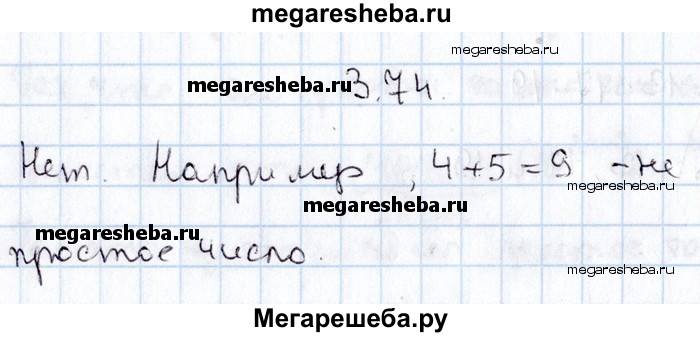 megaresheba.ru
megaresheba.ru
megaresheba.ru
3.74.
Нет. Например, 4+5=9 - не
megaresheba.ru
megaresheba.ru
megaresheba.ru
простое число.
megaresheba.ru
Мегарешеба.ру